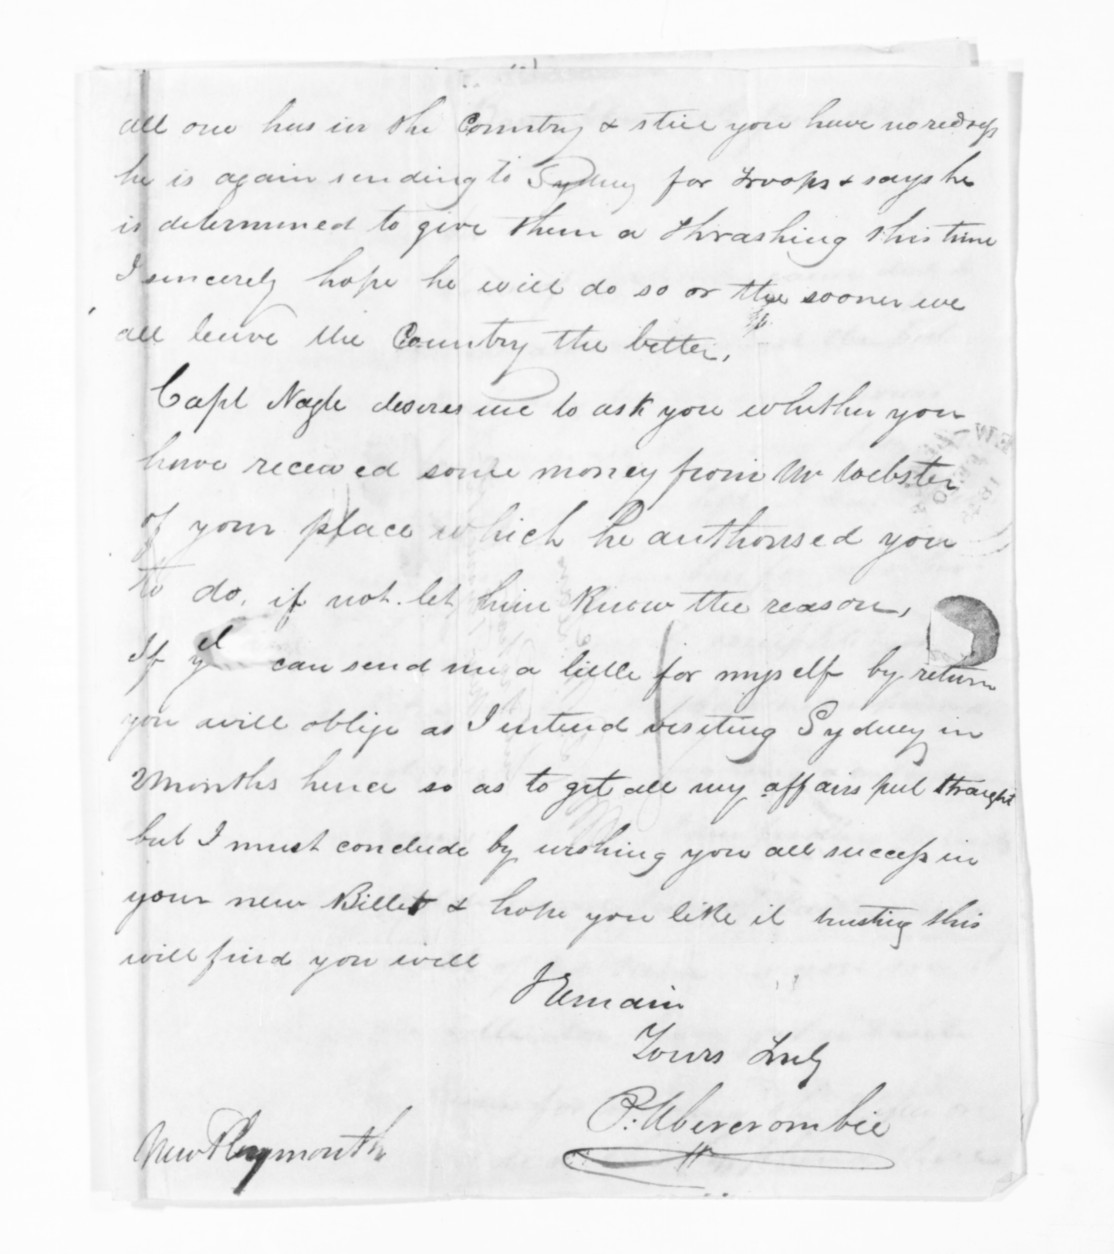 all one has in the Country & still you have no redress
he is again sending to Sydney for Troops & says he
is determined to give them a thrashing this time
I sincerely hope he will do so or the sooner we
all leave the Country the better,
Capt Nagle desires me to ask you whether you
have received some money from Mr Webster
of your place which he authorised you
to do, if not let him Know the reason,
If can send me a little for myself by return
you will oblige as I intend visiting Sydney in
2 months hence so as to get all my affairs put straight
but I must conclude by wishing you all success in
your new Billet & hope you like it trusting this
will find you well
I Remain
Yours Truly
P. Abercrombie
New Plymouth